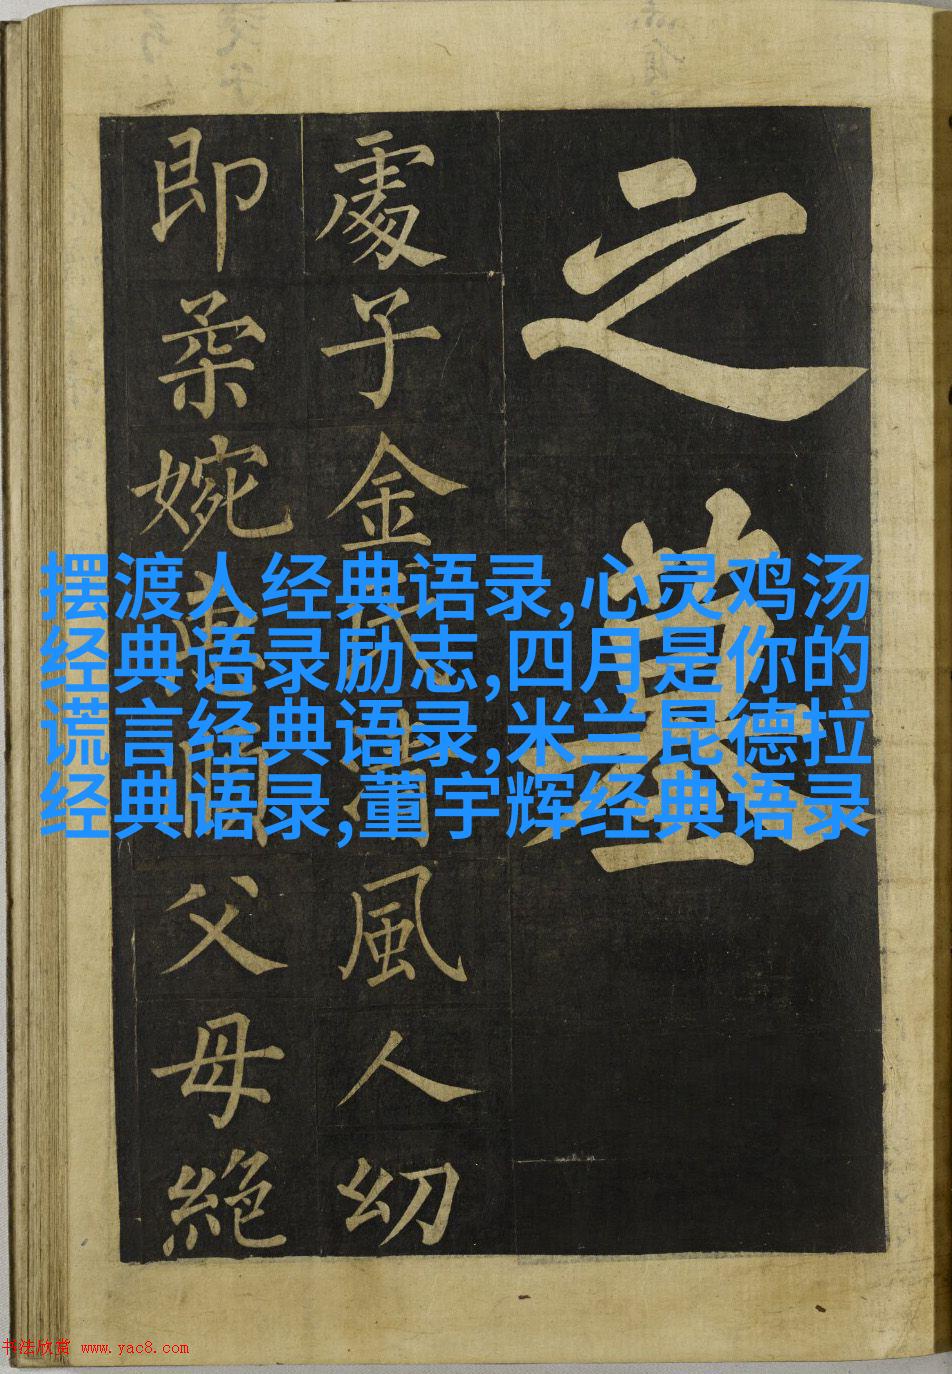 之墓
處子金氏風人幼
即柔婉父母絶
摆渡人经典语录,心灵鸡汤
经典语录励志,四月是你的
谎言经典语录,米兰昆德拉
经典语录,董宇辉经典语录
书法欣赏 www.yac8.com